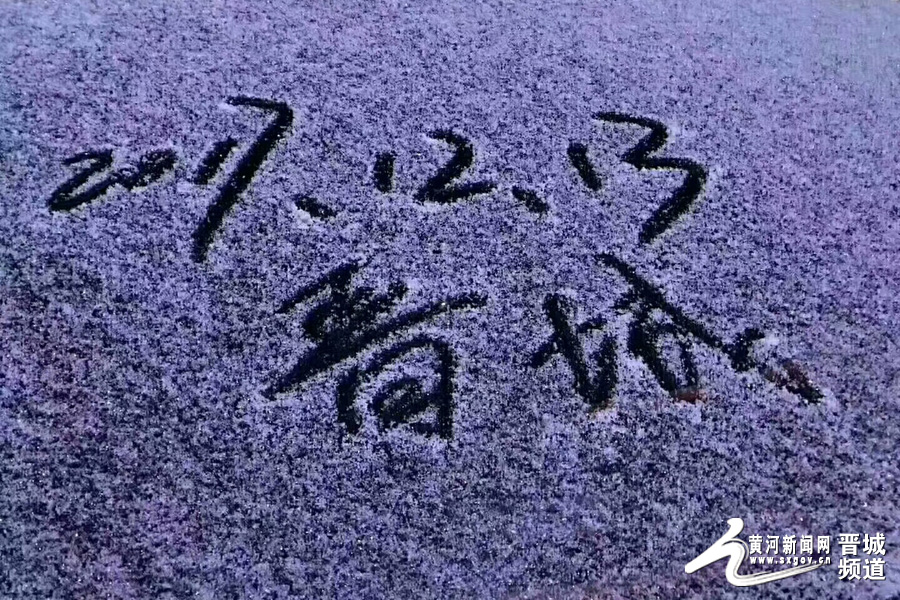 2017.12.13
晋城
黄河新闻网
www.sxgov.cn
晋城
频道